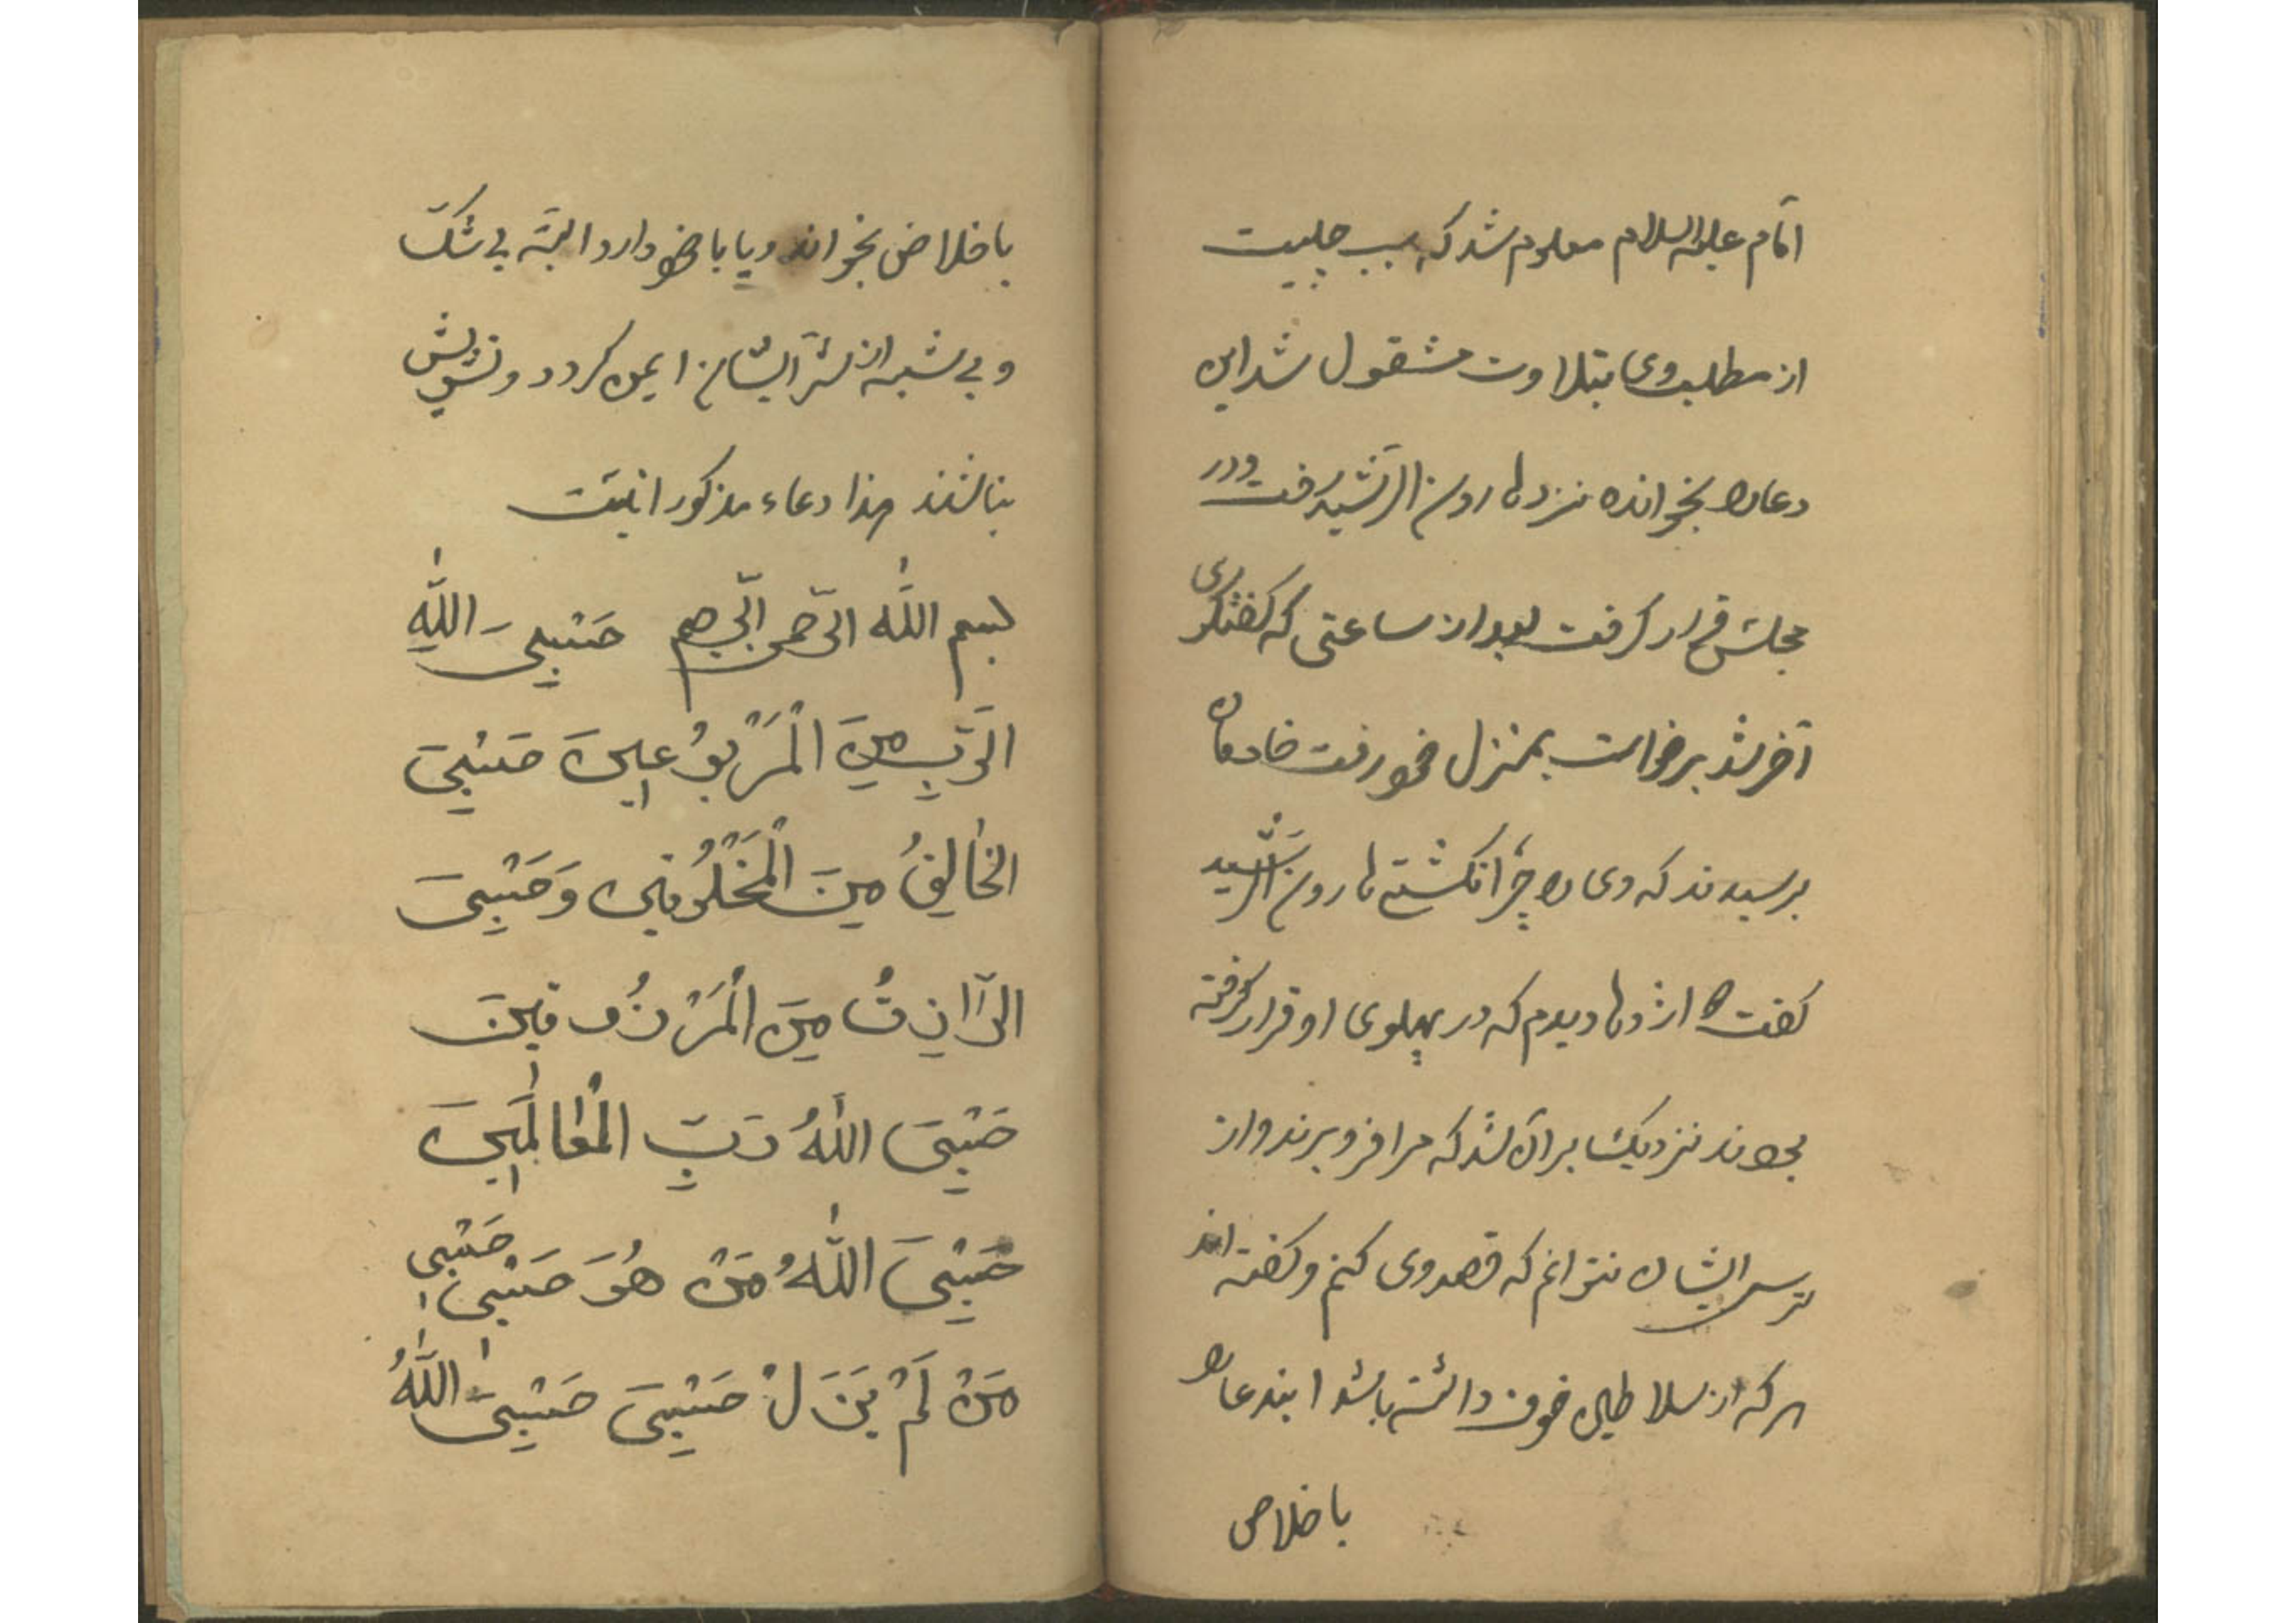 امام علیه السلام معلوم شد که سبب چیست
از مطلب وی بتلاوت مشقول شد این
دعا را بخوانده نزد هارون الرشید رفت و در
مجلس قرار کرفت بعد از ساعتی که کفتکوی
آخر شد برخواست بمنزل خود رفت خادمان
پرسیدند که وی را چرا نکشتی هارون الرشید
کفت اژدها دیدم که در پهلوی او قرار کرفته
بودند نزدیک بر آن شد که مرا فرو برند و از
ترس ایشان نتوانم که قصد وی کنم و کفته اند
هر که از سلاطین خوف داشته باشد ایندعا را
باخلاص
باخلاص بخواند و یا با خود دارد البته بی شک
و بی شبه از شر ایشان ایمن کردد و تشویش
نباشند هذا دعاء مذکور اینت
بسم الله الرحمن الرحیم حَسْبِیَ اللهُ
الرَّبُّ مِنَ الْمَرْبُوْعِینَ حَسْبِیَ
الخَالِقُ مِنَ الْمَخْلُوقِینَ وَحَسْبِیَ
الرَّازِقُ مِنَ الْمَرْزُوقِینَ
حَسْبِیَ اللهُ رَبُّ الْعَالَمِینَ
حَسْبِیَ اللهُ مَنْ هُوَ حَسْبِی حَسْبِی
مَنْ لَمْ یَزَلْ حَسْبِیَ حَسْبِیَ اللهُ